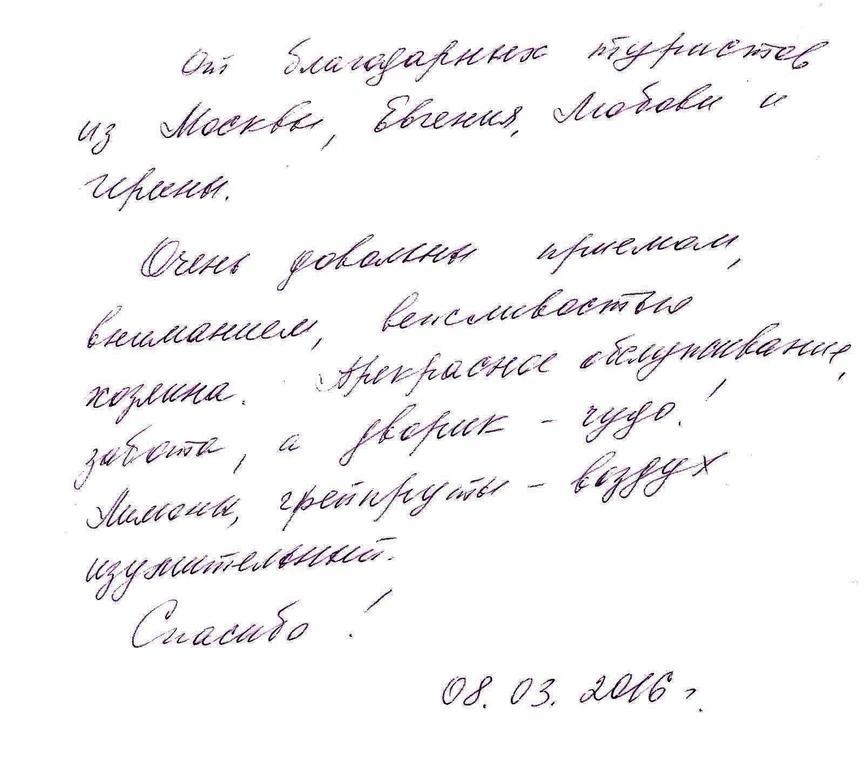 От благодарных туристов
из Москвы, Евгения, Любови и
Ирины.
Очень довольны приемом,
вниманием, вежливостью
хозяина. Прекрасное обслуживание,
забота, а дворик - чудо!
Лимоны, грейпфруты - воздух
изумительный.
Спасибо!
08.03.2016 г.